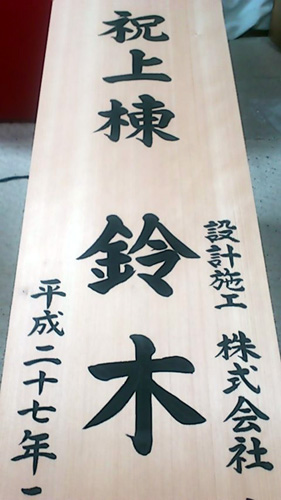 祝上棟 鈴木
設計施工 株式会社
平成二十七年